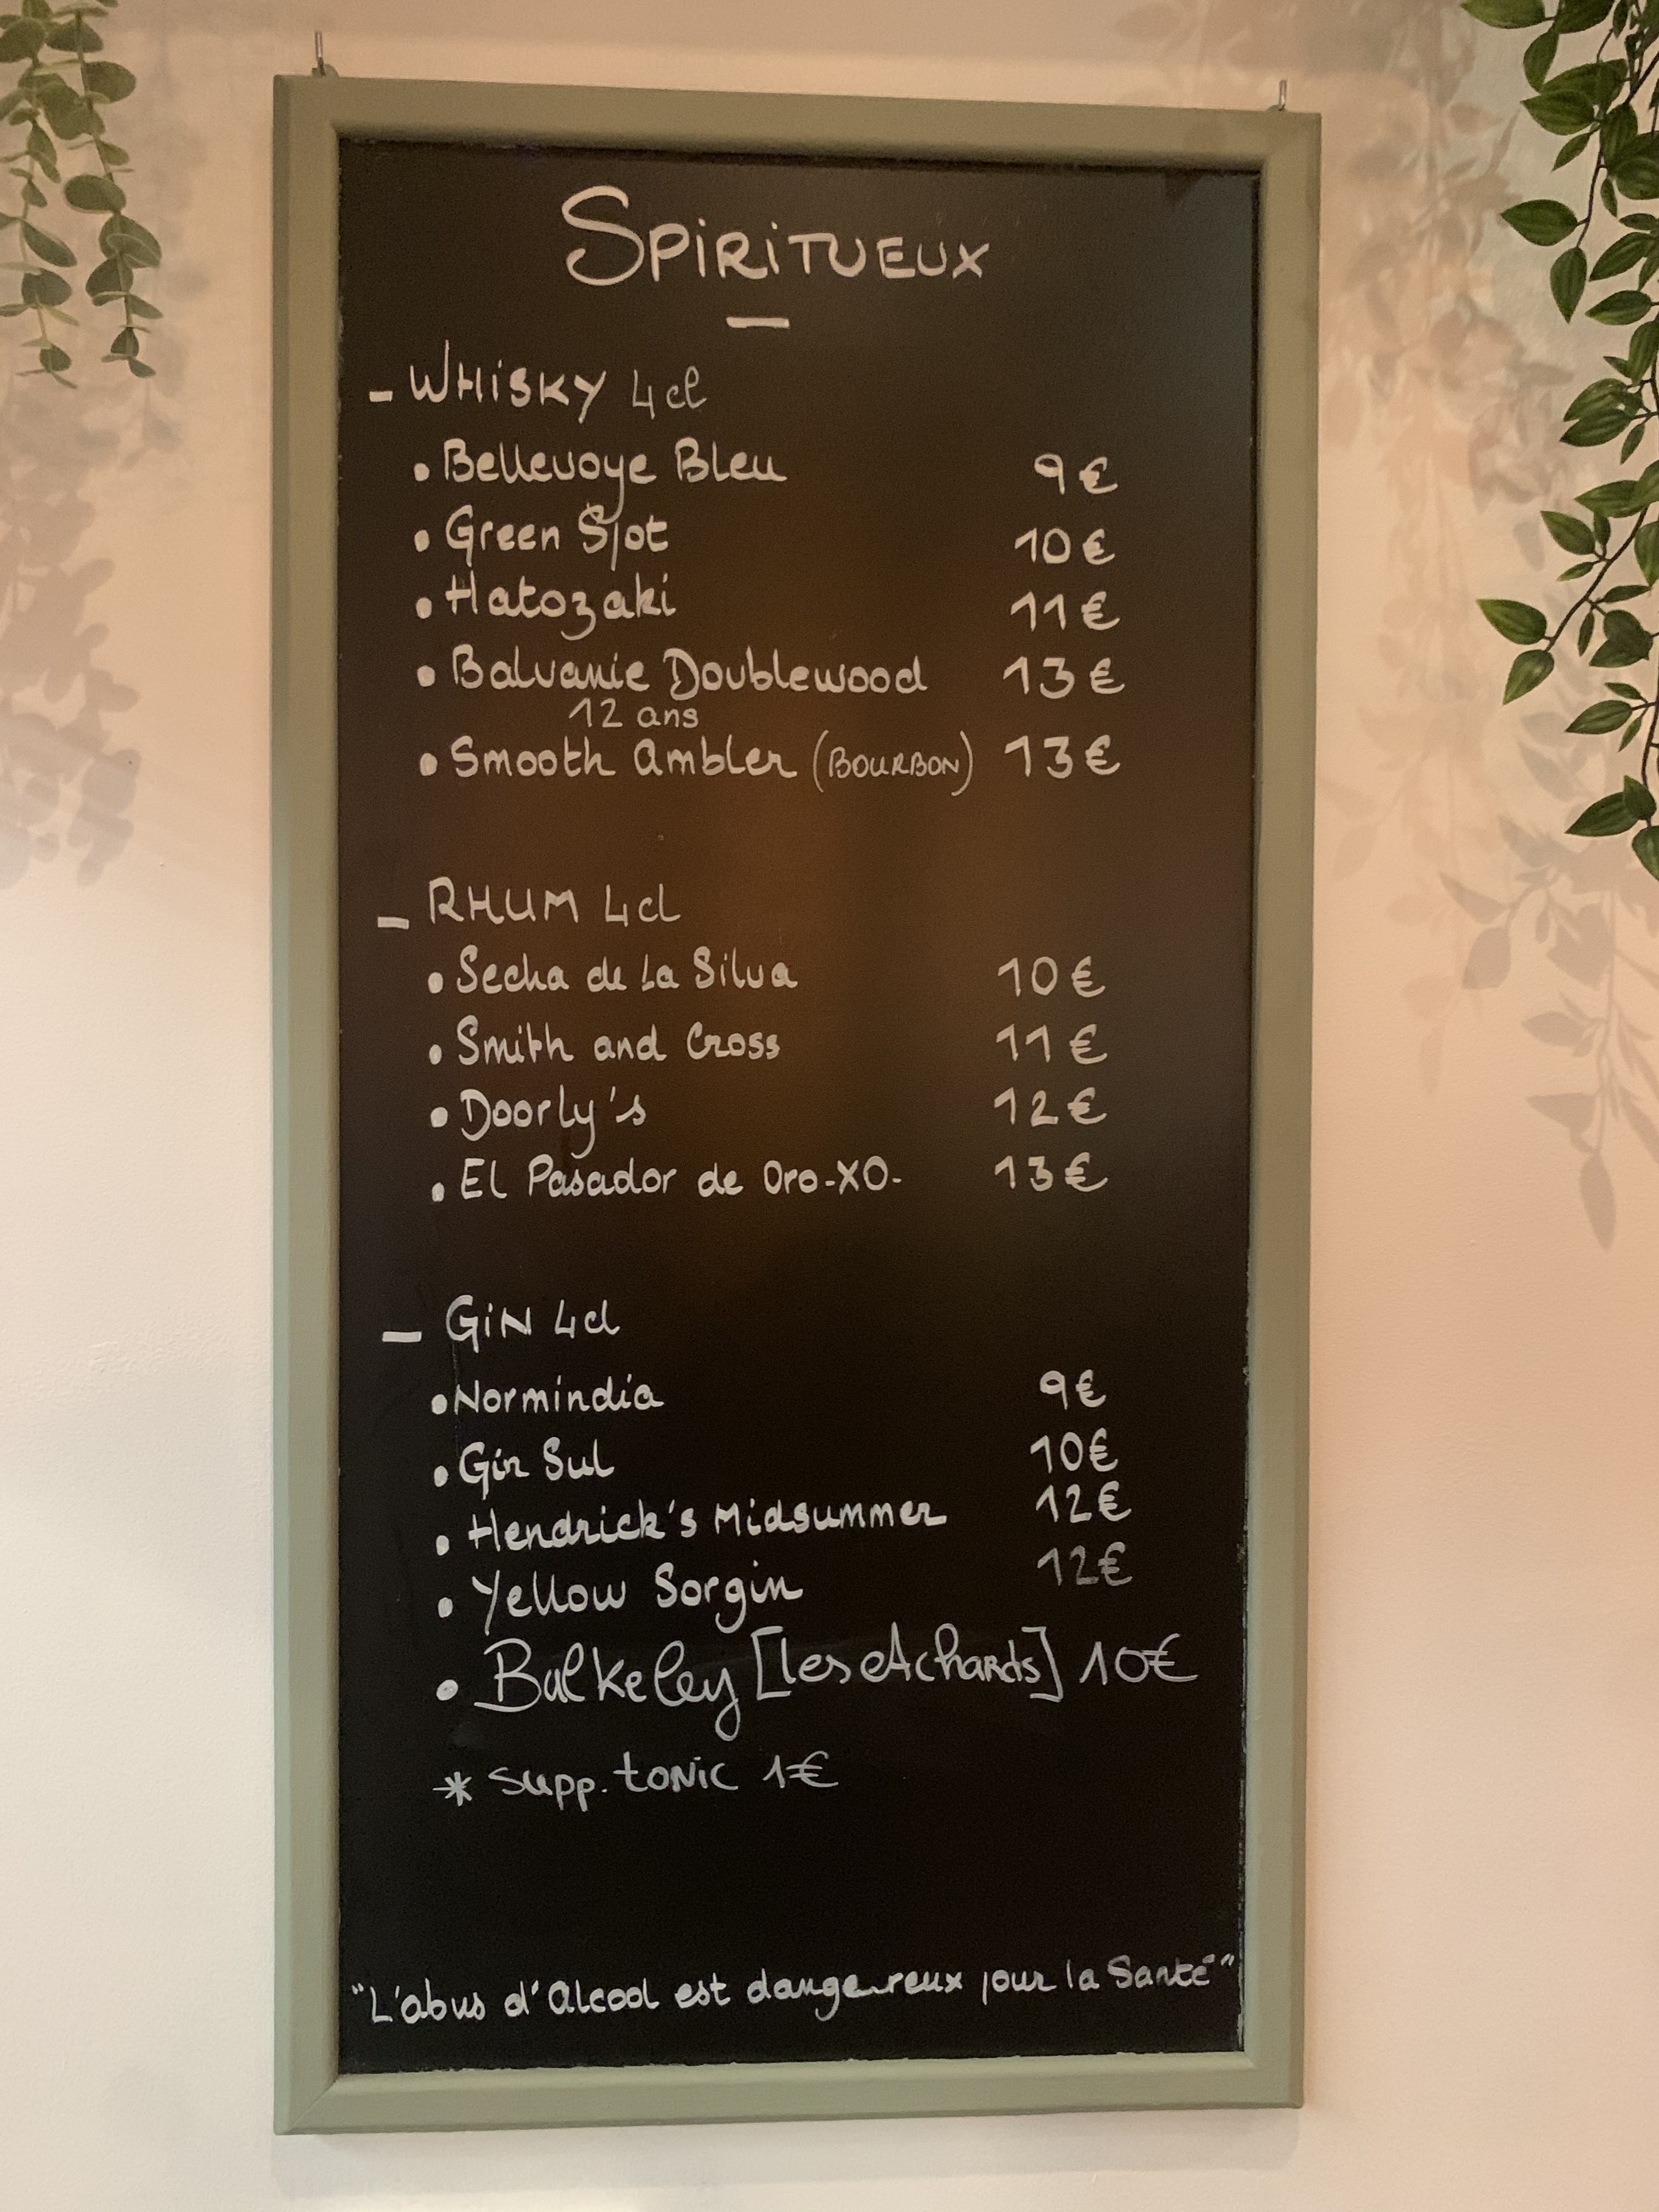 Spiritueux
- Whisky 4cl
• Bellevoye Bleu 9€
• Green Spot 10€
• Hatozaki 11€
• Balvanie Doublewood 13€
12 ans
• Smooth Ambler (Bourbon) 13€
- Rhum 4cl
• Secha de La Silva 10€
• Smith and Cross 11€
• Doorly's 12€
• El Pasador de Oro-XO- 13€
- Gin 4cl
• Normindia 9€
• Gin Sul 10€
• Hendrick's Midsummer 12€
• Yellow Sorgin 12€
• Bulkeley [les Achards] 10€
* Supp. tonic 1€
"L'abus d'Alcool est dangereux pour la Santé"